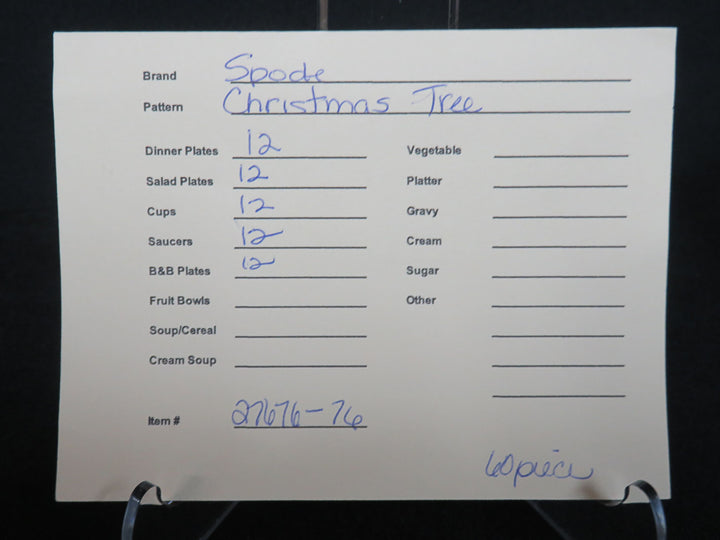 Brand Spode
Pattern Christmas Tree
Dinner Plates 12 Vegetable
Salad Plates 12 Platter
Cups 12 Gravy
Saucers 12 Cream
B&B Plates 12 Sugar
Fruit Bowls Other
Soup/Cereal
Cream Soup
Item # 27676-76
60 piece